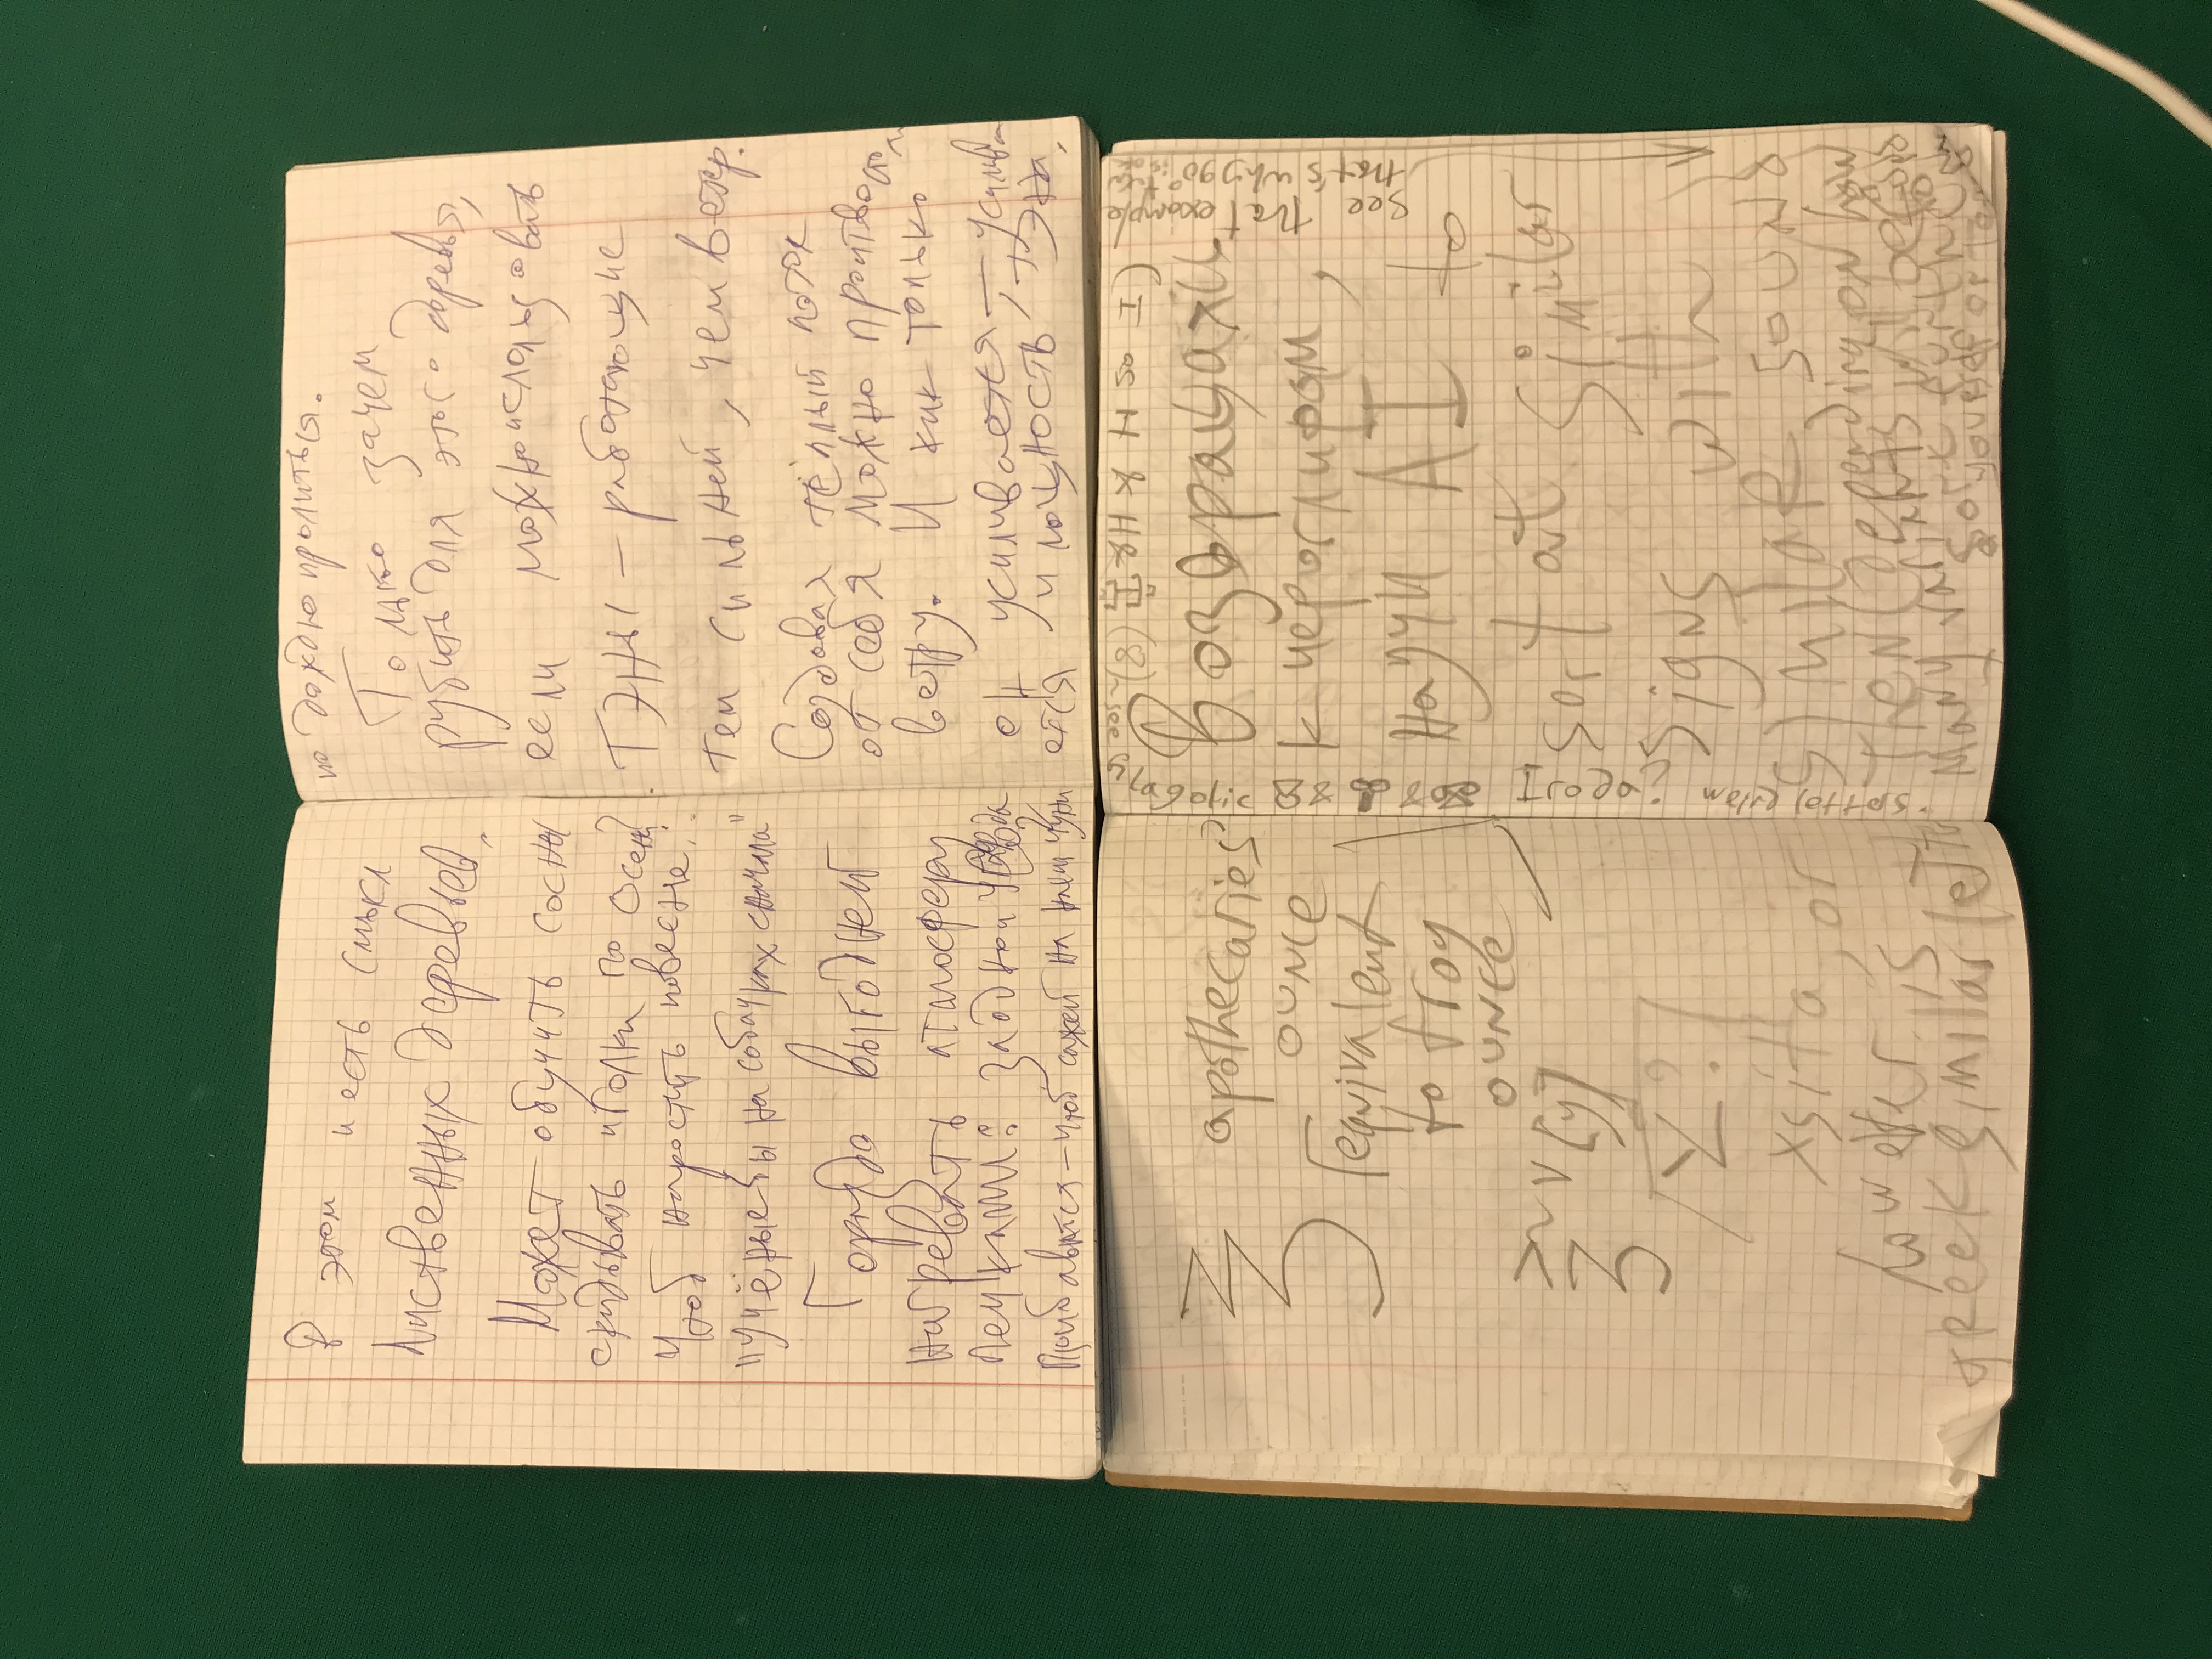 В этом и есть смысл
лиственных деревьев.
Может обучить сосны
скидывать иголки по осени?
Чтоб наростить повесне.
"учёные бы на собачках сначала"
Горазда выгодней
нагревать атмосферу
печками: заодной углерода
прибавится — чтоб сажей на
по дождю пролиться.
Только зачем
рубить для этого деревья,
если можно использовать
ТЭНы — работающие
тем сильней, чем ветер.
Создавая тёплый поток
от себя можно противостоять
ветру. И как только
он усиливается, — усилива
ется и мощность ТЭНа.
apothecaries'
ounce
equivalent
to troy
ounce
V [y]
Σ?
xsita, or
however is
greek similar letter
Glagolic
weird letters.
Возвращаясь
к иероглифам,
научи AI to
sort at similar
signs with
similar sound
then (depending on how
many variants will be found
sort further
yourself or to
see that example
that's why 90°